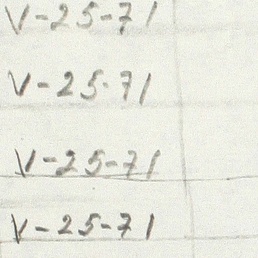 V-25-71
V-25-71
V-25-71
V-25-71